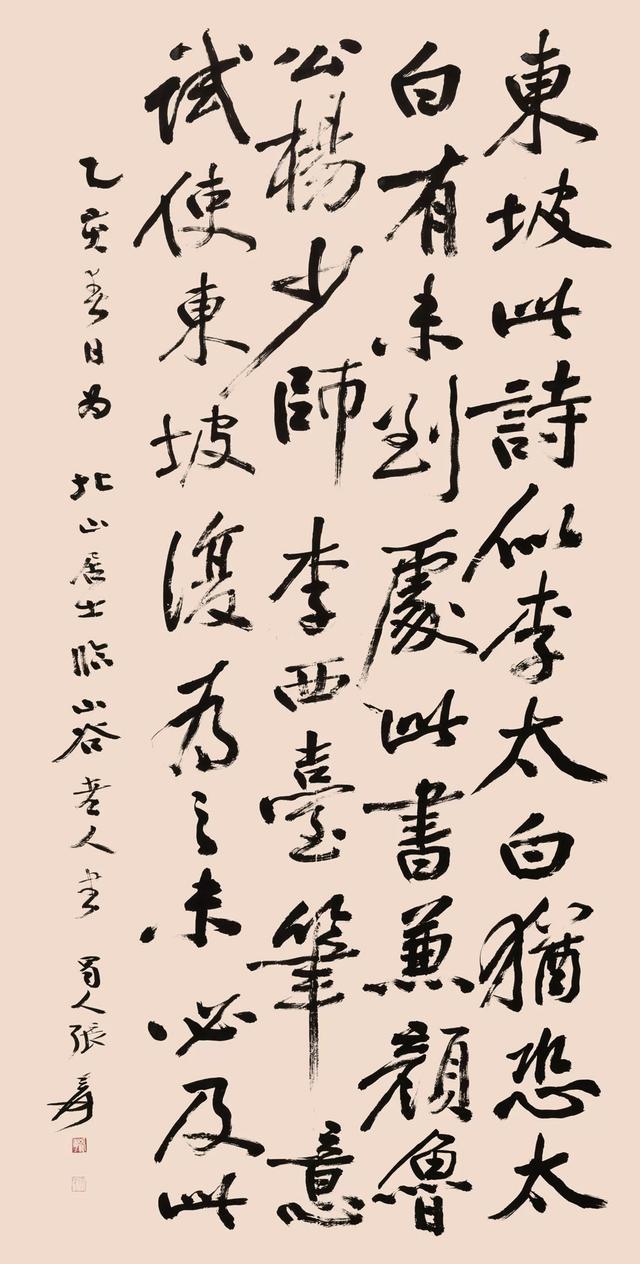 東坡此詩似李太白猶恐太
白有未到處此書兼顏魯
公楊少師李西臺筆意
試使東坡復為之未必及此
乙亥春日為 北山居士臨山谷老人書 蜀人張爰